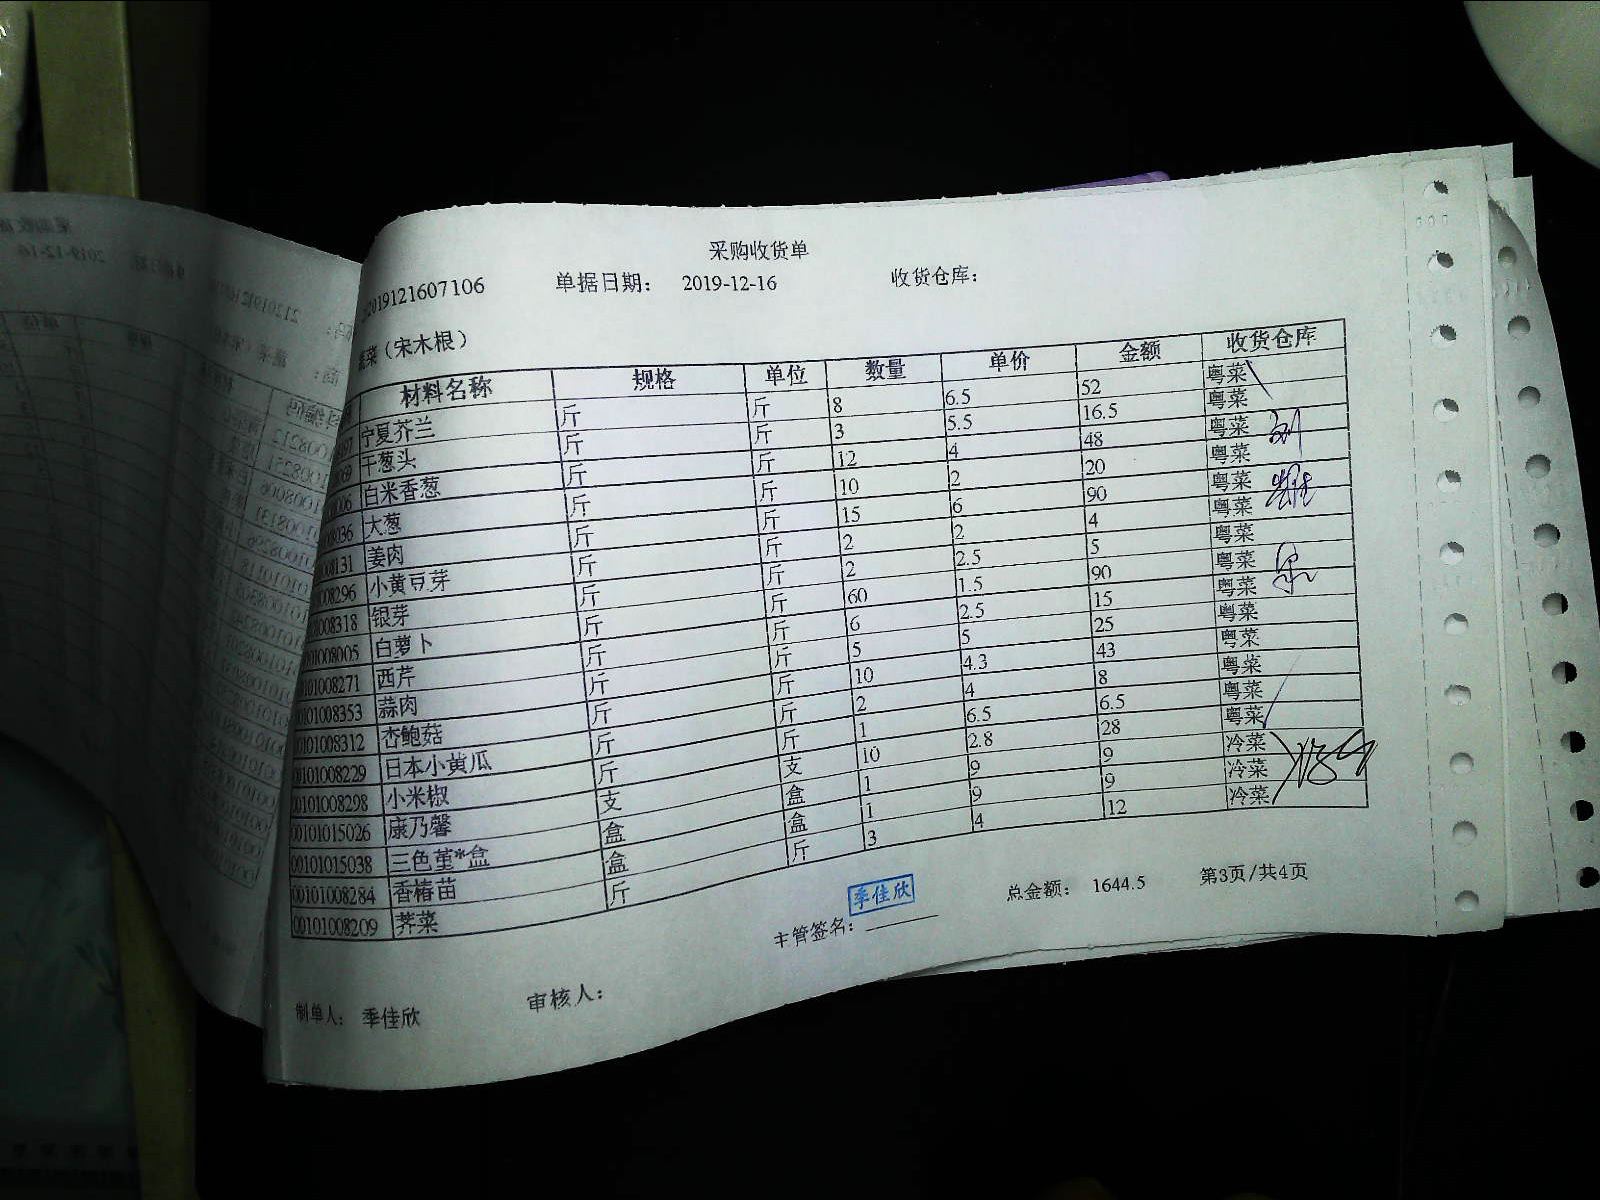 采购收货单
2019121607106 单据日期： 2019-12-16 收货仓库：
菜（宋木根）
材料名称 规格 单位 数量 单价 金额 收货仓库
宁夏芥兰 斤 斤 8 6.5 52 粤菜
干葱头 斤 斤 3 5.5 16.5 粤菜
006 白米香葱 斤 斤 12 4 48 粤菜
8036 大葱 斤 斤 10 2 20 粤菜
08131 姜肉 斤 斤 15 6 90 粤菜
008296 小黄豆芽 斤 斤 2 2 4 粤菜
1008318 银芽 斤 斤 2 2.5 5 粤菜
01008005 白萝卜 斤 斤 60 1.5 90 粤菜
0101008271 西芹 斤 斤 6 2.5 15 粤菜
0101008353 蒜肉 斤 斤 5 5 25 粤菜
0101008312 杏鲍菇 斤 斤 10 4.3 43 粤菜
00101008229 日本小黄瓜 斤 斤 2 4 8 粤菜
00101008298 小米椒 斤 斤 1 6.5 6.5 粤菜
00101015026 康乃馨 支 支 10 2.8 28 粤菜
00101015038 三色堇*盒 盒 盒 1 9 9 冷菜
00101008284 香椿苗 盒 盒 1 9 9 冷菜
00101008209 荠菜 斤 斤 3 4 12 冷菜
季佳欣
主管签名： 总金额： 1644.5 第3页/共4页
制单人： 季佳欣 审核人：